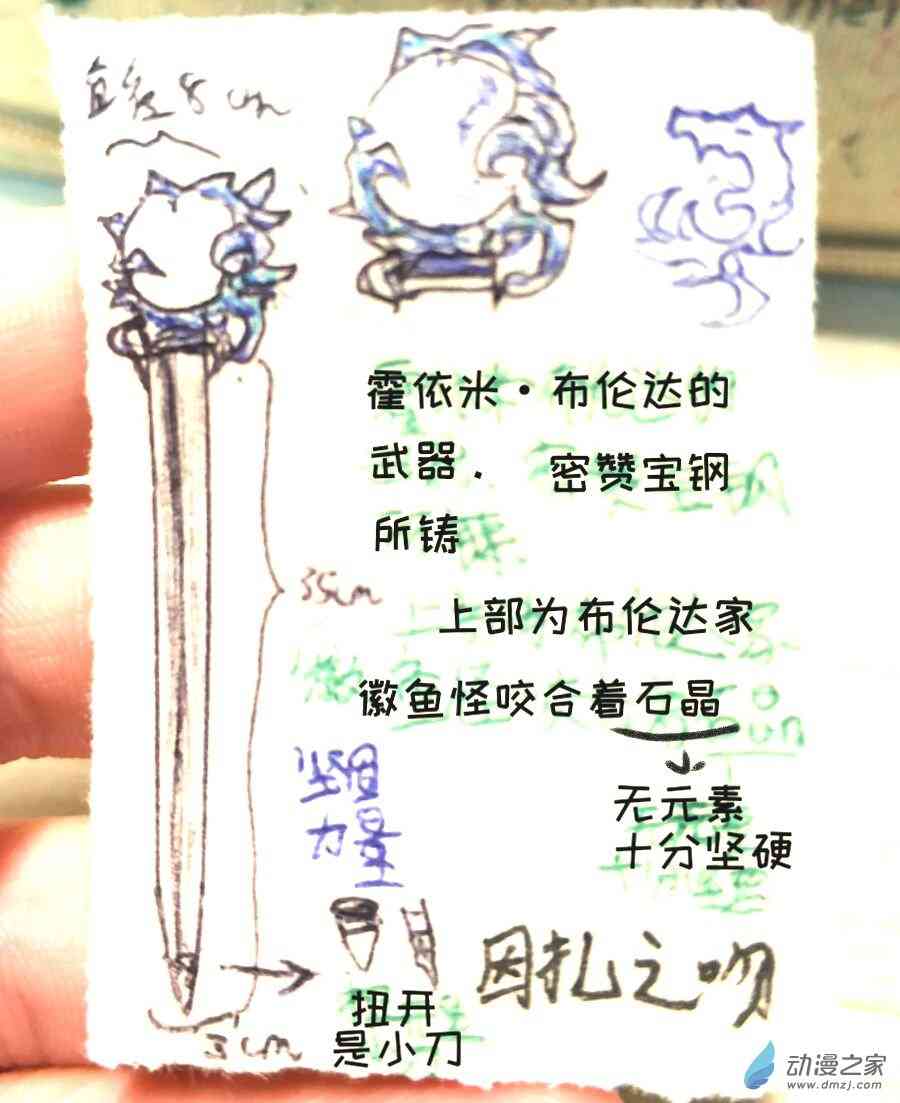 直径8cm
霍依米·布伦达的
武器. 密赞宝钢
所铸
35cm
上部为布伦达家
徽鱼怪咬合着石晶
无元素
十分坚硬
力量
因扎之吻
扭开
是小刀
3cm
动漫之家
www.dmzj.com